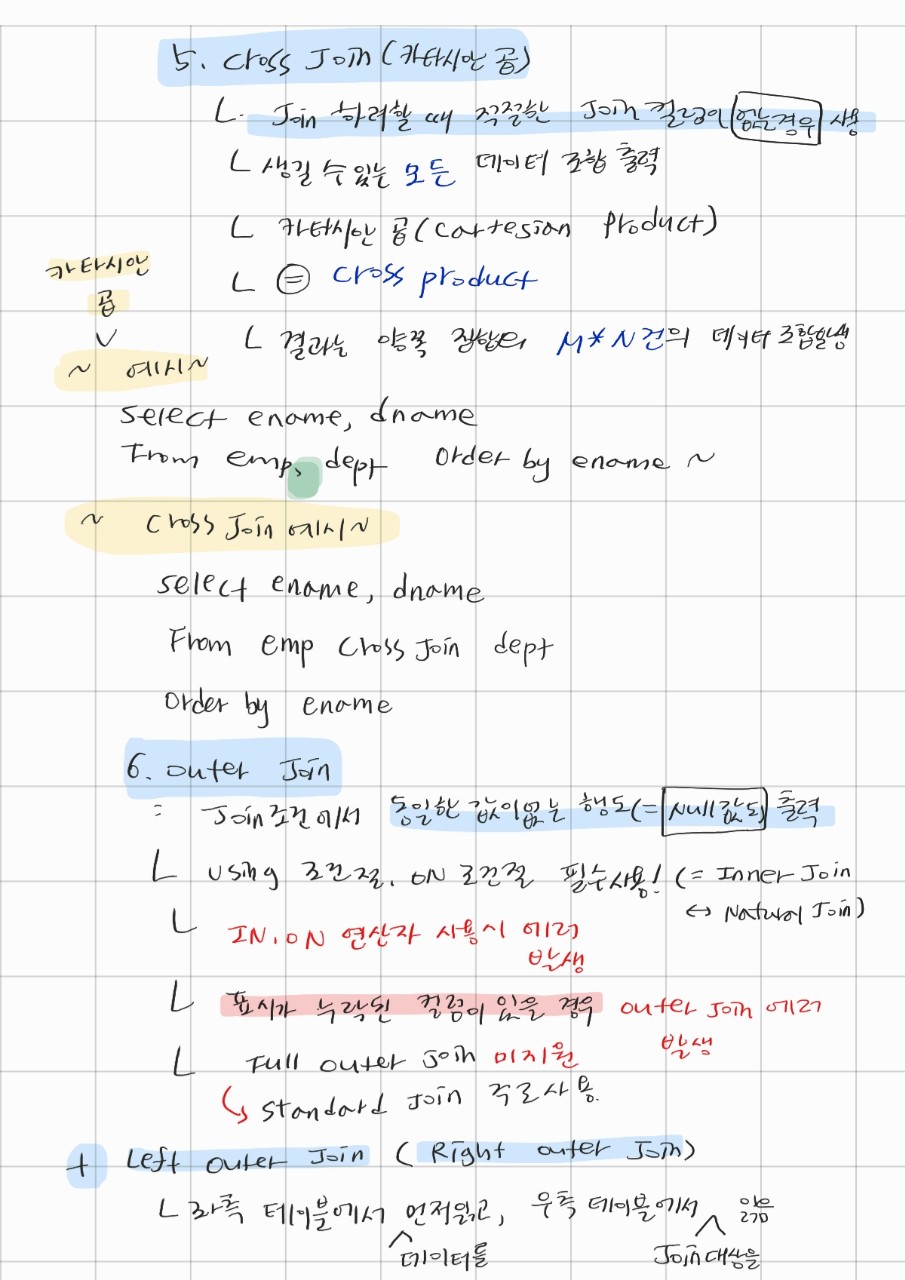 5. Cross Join (카타시안 곱)
ㄴ. Join 하려할 때 적절한 Join 컬럼이 없는경우 사용
ㄴ 생길 수 있는 모든 데이터 조합 출력
ㄴ 카타시안 곱 (Cartesian Product)
ㄴ = Cross product
ㄴ 결과는 양쪽 집합의 M*N건의 데이터 조합발생
카타시안
곱
~ 예시~
select ename, dname
From emp, dept Order by ename ~
~ Cross Join 예시~
select ename, dname
From emp Cross Join dept
Order by ename
6. outer Join
: Join조건에서 동일한 값이없는 행도(= Null값도) 출력
ㄴ Using 조건절, ON 조건절 필수사용! (= Inner Join
↔ Natural Join)
ㄴ IN, ON 연산자 사용시 에러
발생
ㄴ 표시가 누락된 컬럼이 있을 경우 outer Join 에러
발생
ㄴ Full outer Join 미지원
↳ Standard Join 주로사용.
+ Left outer Join (Right outer Join)
ㄴ 좌측 테이블에서 데이터를 먼저읽고, 우측 테이블에서 Join대상을 읽음